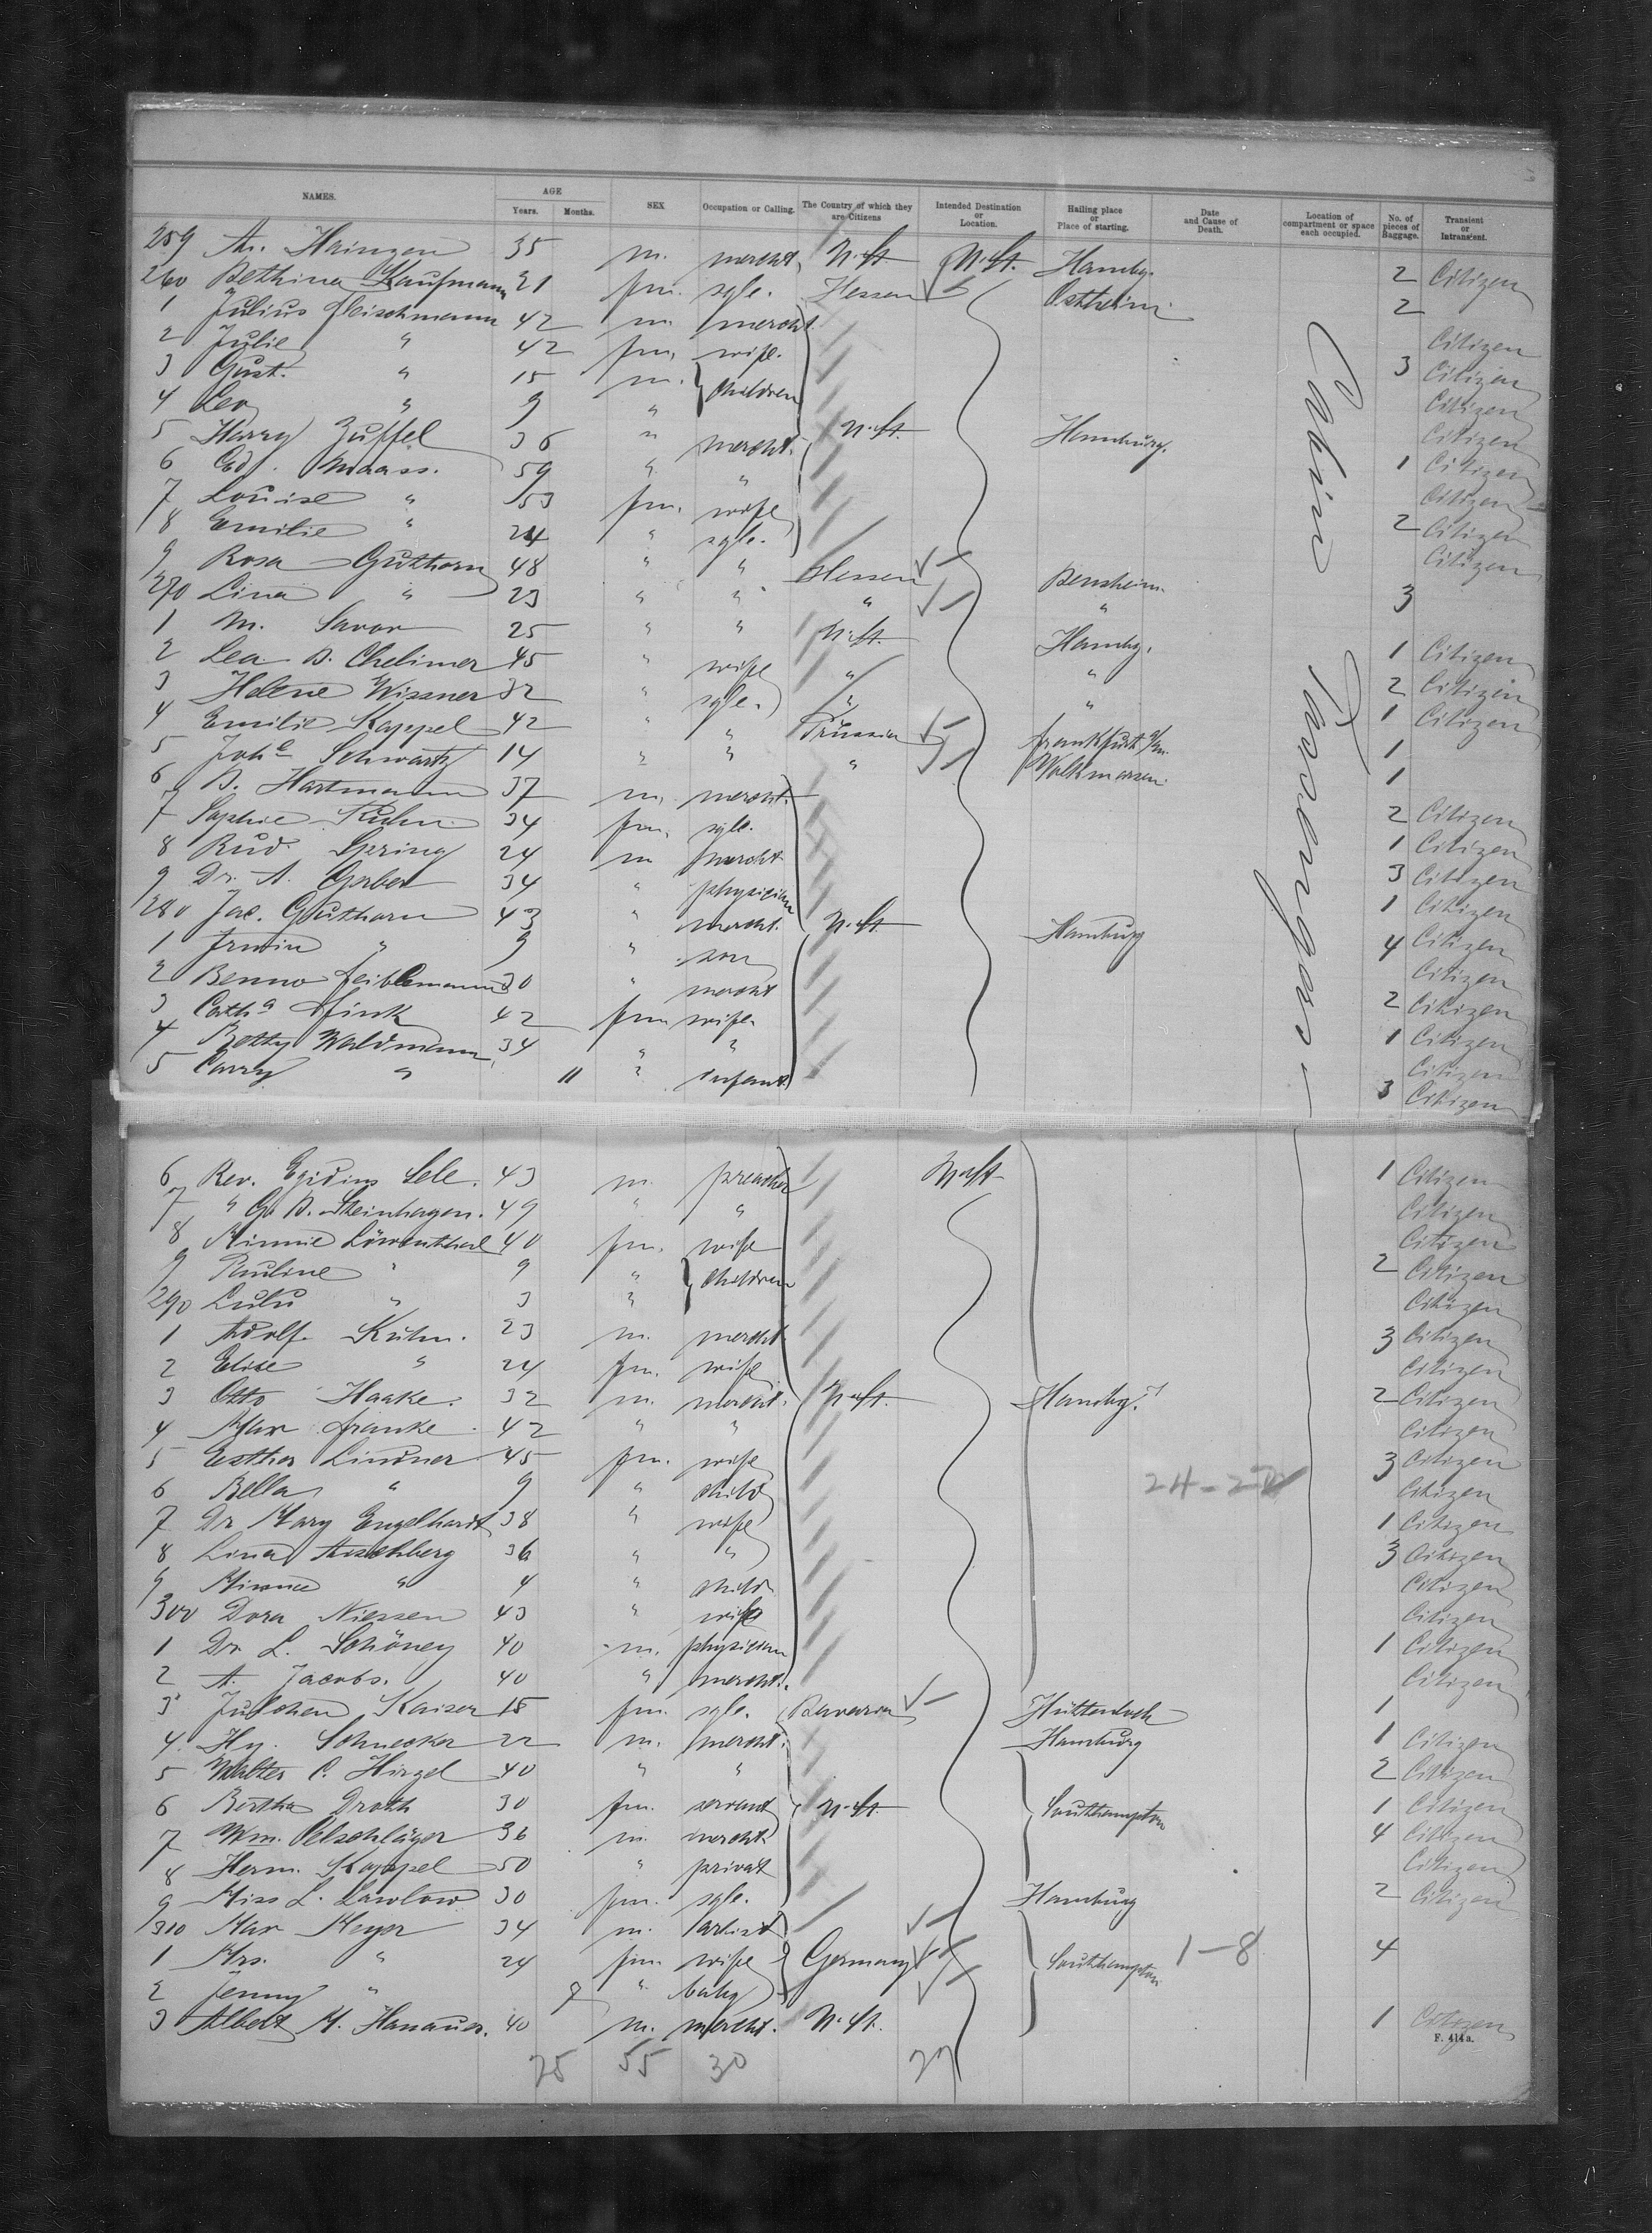 NAMES. AGE Years. Months. SEX Occupation or Calling. The Country of which they are Citizens Intended Destination or Location. Hailing place or Place of starting. Date and Cause of Death. Location of compartment or space each occupied. No. of pieces of Baggage. Transient or Intransient.
259 35 m. mercht. N. St. N. St. Hambg. 2 Citizen
260 Bethina Kaufmann 21 fm. sgle. Hessen Ostheim 2
1 Julius Fleischmann 42 m. mercht. Citizen
2 Julie " 42 fm. wife. 3 Citizen
3 Gust. " 15 m. children Citizen
4 Leo " 9 " Citizen
5 Harry Zuffel 36 " mercht. N. St. Hamburg. 1 Citizen
6 Ed. Maass. 59 " " Citizen
7 Louise " 53 fm. wife 2 Citizen
8 Emilie " 24 " sgle. Citizen
9 Rosa Guthorn 48 " " Hessen Bensheim.
270 Lina " 23 " " " " 3
1 M. Savor 25 " " N. St. Hambg. 1 Citizen
2 Lea B. Chelimer 45 " wife " " 2 Citizen
3 Helene Wissner 32 " sgle. " " 1 Citizen
4 Emilie Kappel 42 " " Prussia Frankfurt a/m. 1
5 Joh.e Schwartz 14 " " " Volkmarsen. 1
6 B. Hartmann 37 m. mercht. 2 Citizen
7 Sophie Kuhn. 34 fm. sgle. 1 Citizen
8 Rud. Spring 24 m mercht 3 Citizen
9 Dr. A. Gerber 34 " physician 1 Citizen
280 Jac. Guthorn 43 " mercht. N. St. Hamburg 4 Citizen
1 Irwin " 9 " son Citizen
2 Benno Feiblemann 30 " mercht 2 Citizen
3 Catha. Fink 42 fm wife. 1 Citizen
4 Betty Waldmann, 34 " " Citizen
5 Carry " 11 " infant. 3 Citizen
Cabin Passengers
6 Rev. Egidius Lele. 43 m. preacher N. St. 1 Citizen
7 " G. B. Steinhagen. 49 " " Citizen
8 Minnie Löwenthal 40 fm. wife Citizen
9 Pauline " 9 " children 2 Citizen
290 Lulu " 3 " Citizen
1 Adolf. Kuhn. 23 m. mercht. 3 Citizen
2 Elise " 24 fm. wife Citizen
3 Otto Haake. 32 m. mercht. N. St. Hambg. 2 Citizen
4 Max Franke. 42 " " Citizen
5 Esther Lindner 45 fm. wife 3 Citizen
6 Bella " 9 " child 24-2 Citizen
7 Dr Mary Engelhardt 38 " wife 1 Citizen
8 Lina Aeschberg 36 " " 3 Citizen
9 Minnie " 4 " child. Citizen
300 Dora Niessen 43 " wife Citizen
1 Dr. L. Schöney 40 m. physician 1 Citizen
2 A. Jacobs. 40 " mercht. Citizen
3 Julchen Kaiser 18 fm. sgle. Bavaria Hüttenbach 1
4. Hy. Schnecker 22 m. mercht. Hamburg 1 Citizen
5 Walter C. Hirzel 40 " " 2 Citizen
6 Bertha Droth 30 fm. servant N. St. Southampton 1 Citizen
7 Wm. Oelschläger 36 m. mercht 4 Citizen
8 Herm. Kappel 50 " privat Citizen
9 Miss L. Lawlow 30 fm. sgle. Hamburg 2 Citizen
310 Max Meyer 34 m. artist
1 Mrs. " 24 fm. wife Germany Southampton 1-8 4
2 Jenny " 9 " baby
3 Albert M. Hanauer. 40 m. mercht. N. St. 1 Citizen
F. 414a.
25 55 30 27